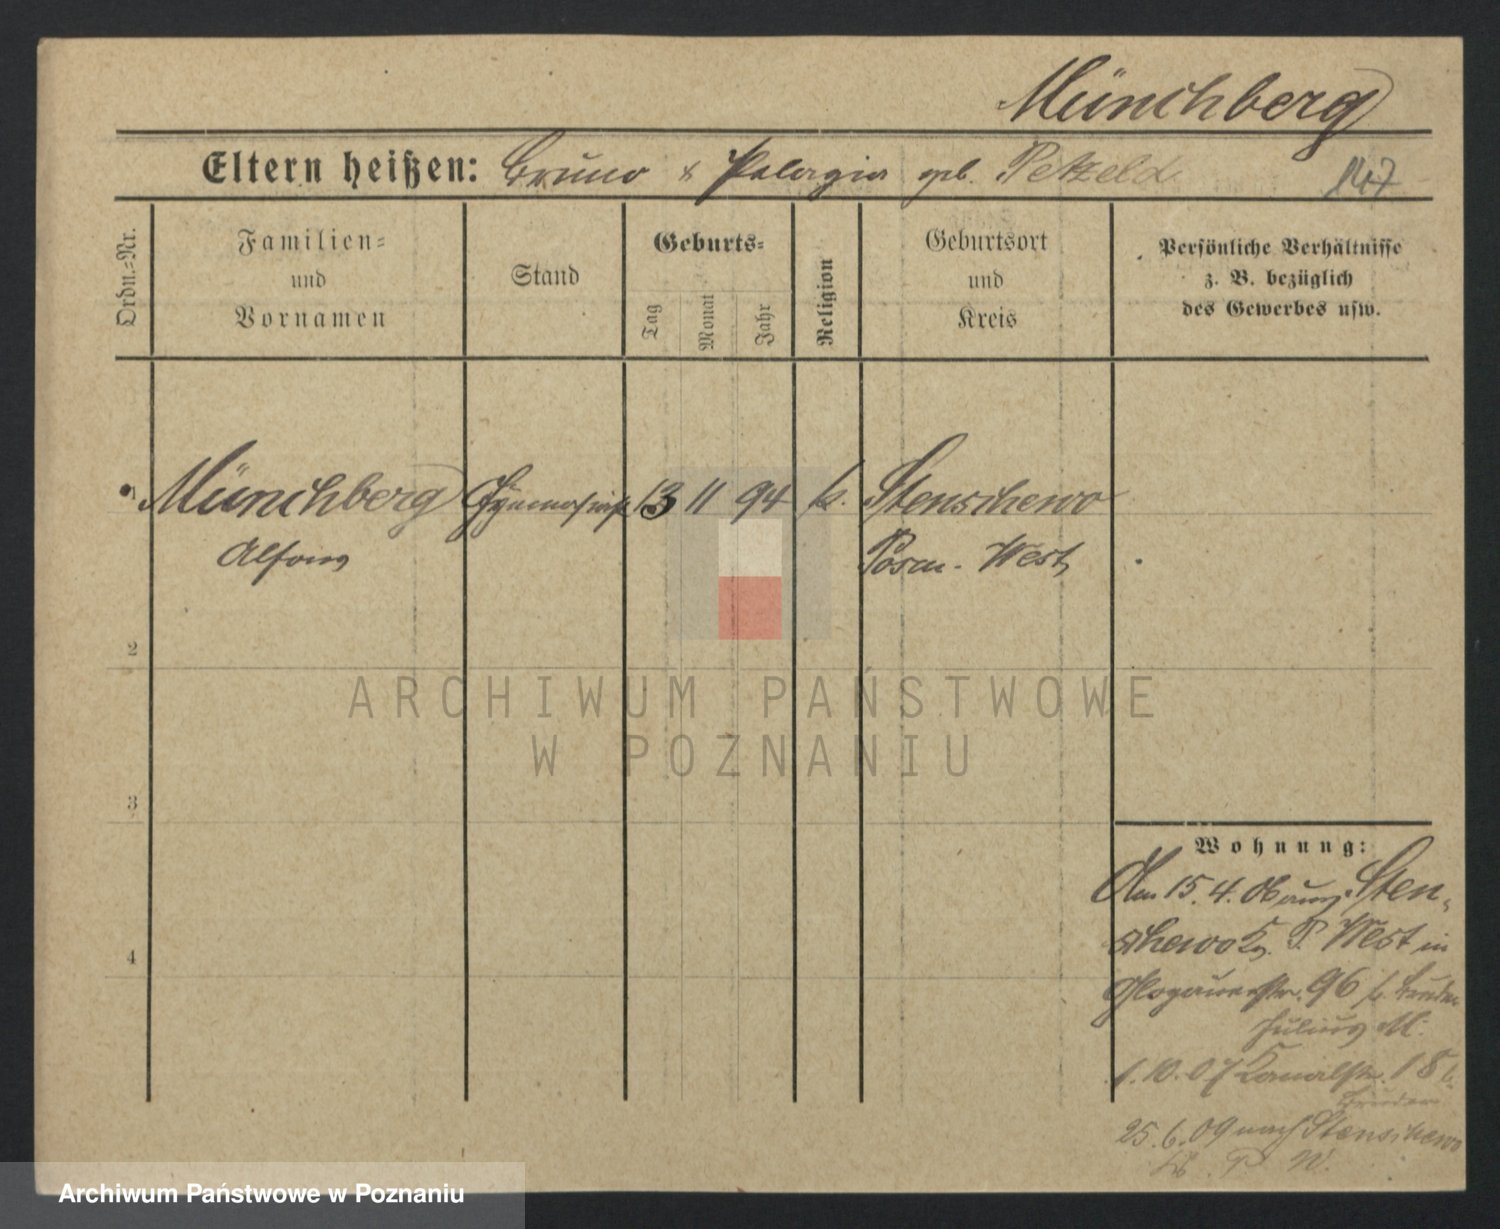 Münchberg
Eltern heißen: Bruno & Pelagia geb. Petzeld
147
Ordn.-Nr.
Familien-
und
Vornamen
Stand
Geburts-
Tag
Monat
Jahr
Religion
Geburtsort
und
Kreis
Persönliche Verhältnisse
z. B. bezüglich
des Gewerbes usw.
1 Münchberg Gymnasiast 13 11 94 k. Stenschewo
Alfons Posen-West
2
3
4
Wohnung:
Am 15.4.06 aus Sten-
schewo Kr. P. West in
Glogauerstr. 96 b. Bruder
Julius M.
1.10.07 Kanalstr. 18 b.
Bruder
25.6.09 nach Stenschewo
P. W.
ARCHIWUM PAŃSTWOWE
W POZNANIU
Archiwum Państwowe w Poznaniu